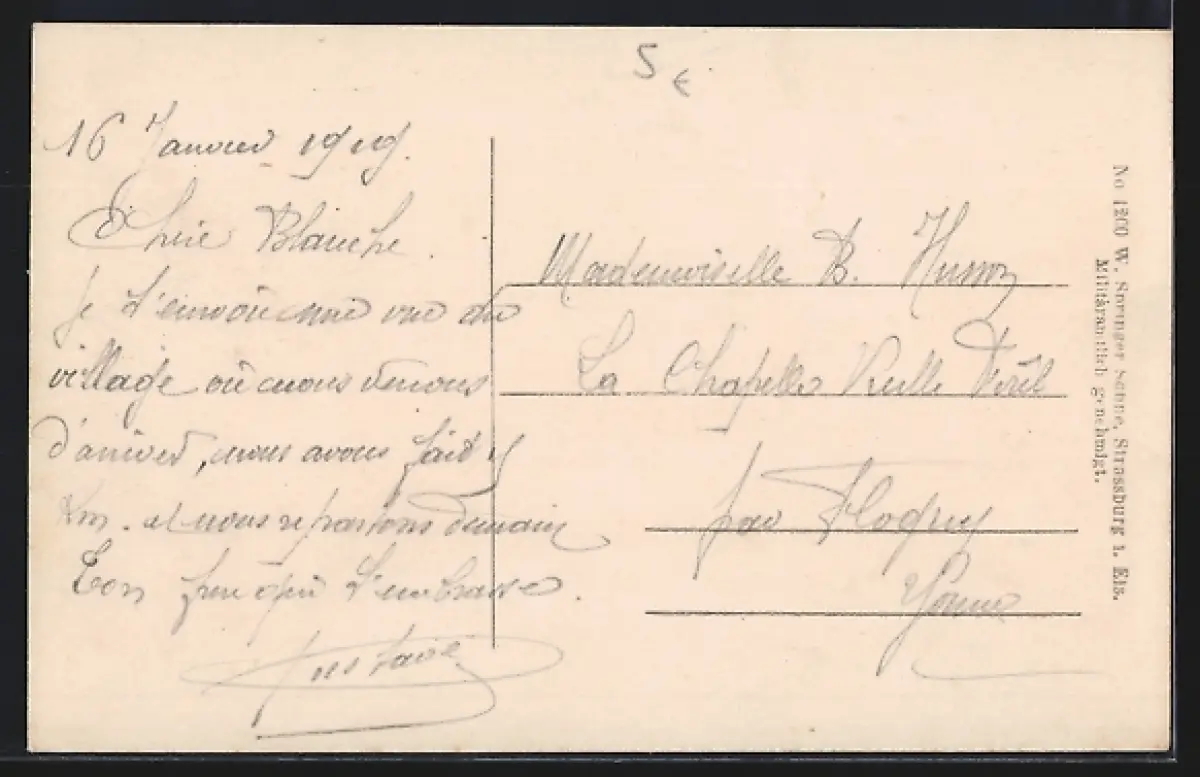 5 €
16 Janvier 1919.
Chère Blanche.
Je t'envoie une vue du
village où nous venons
d'arriver, nous avons fait
Km. et nous repartons demain
Ton frère qui t'embrasse.
Gustave
Mademoiselle B.
La Chapelle Vieille Forêt
par Flogny
Yonne
No 1200 W. Springer Sohne, Strassburg i. Els.
Militäramtlich genehmigt.